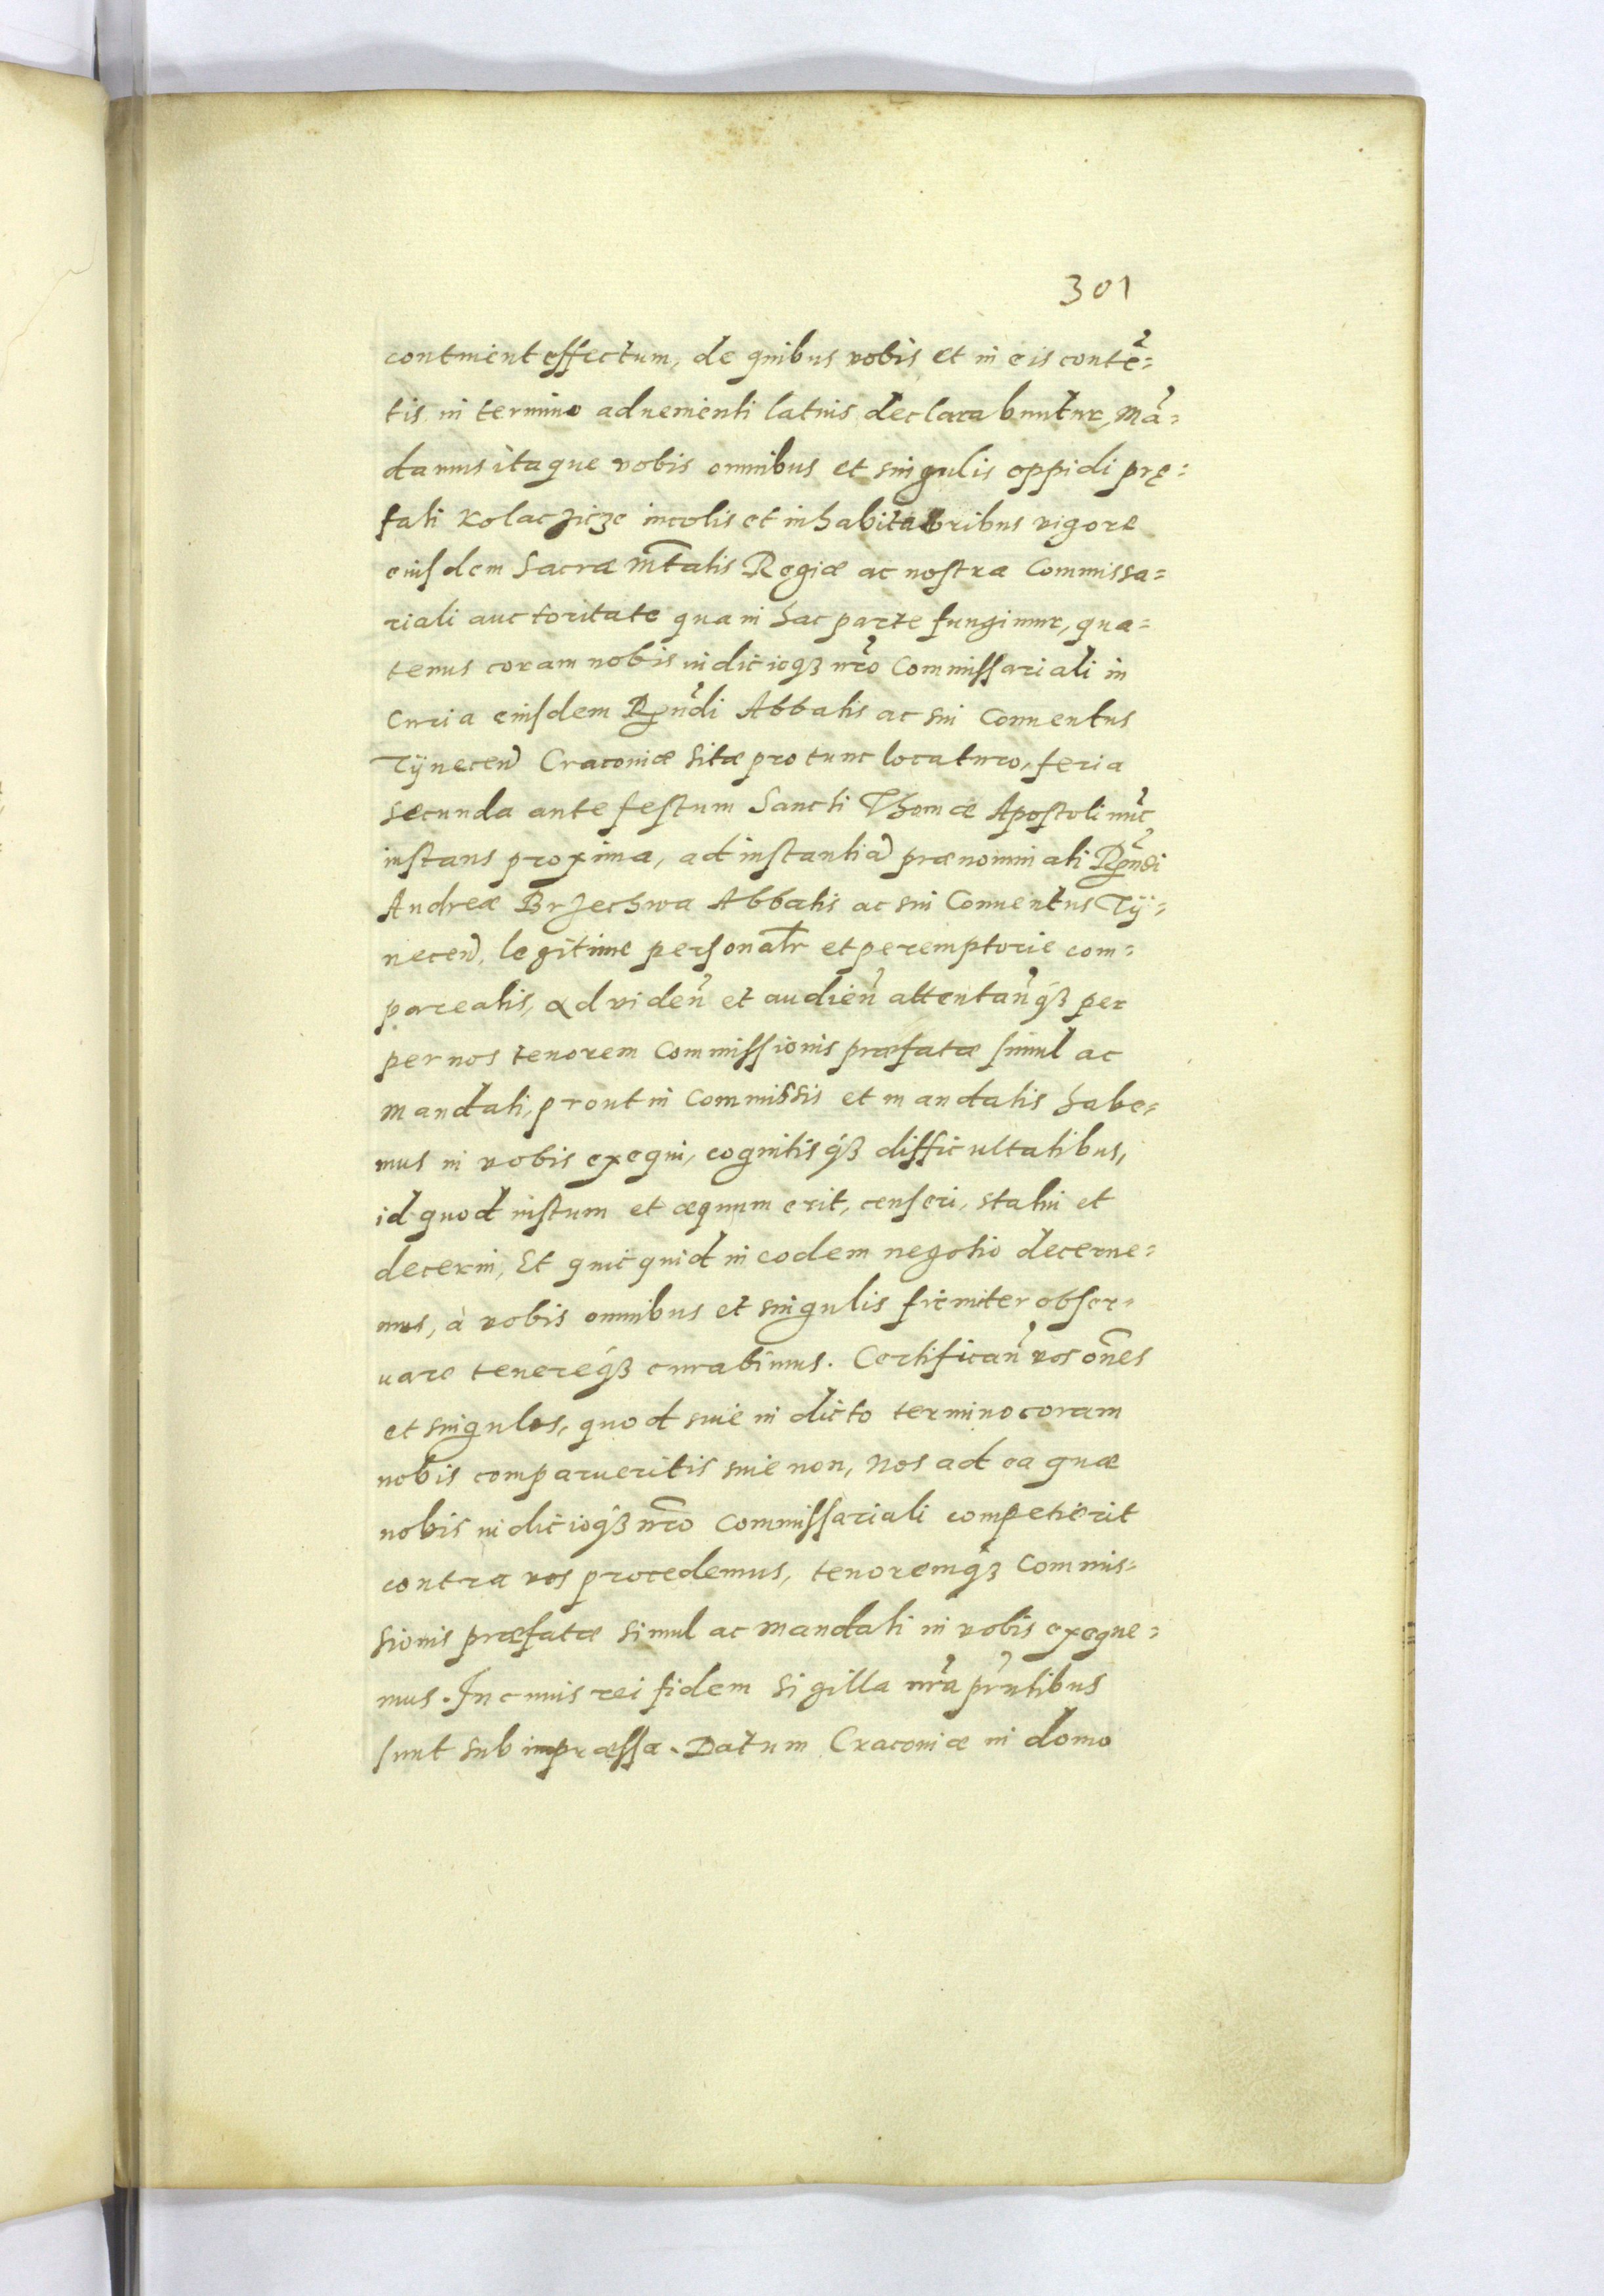 301
continent effectum, de quibus vobis et in eis contẽ=
tis in termino aduenienti latius declarabuntur, Mã=
damus itaque vobis omnibus et singulis oppidi prę=
fati Kolaczicze incolis et inhabitatoribus vigore
eiusdem Sacræ Mtatis Regiæ ac nostra Commissa=
riali auctoritate qua in hac parte fungimur, qua=
tenus coram nobis iudicioqȝ nr̃o Commissariali in
Curia eiusdem Rñdi Abbatis ac sui Conuentus
Tÿnecen̄ Cracoviæ sitæ pro tunc locaturo, feria
secunda ante festum Sancti Thomæ Apostoli nũc
instans proxima, ad instantiā prænominati Rñdi
Andreæ Brzechwa Abbatis ac sui Conuentus Tÿ=
necen̄, legitime personalr et peremptorie com=
pareatis, Ad viden̄ et audien̄ attentan̄qȝ per
per nos tenorem Commissionis præfatæ simul ac
Mandati, prout in Commissis et mandatis habe=
mus in vobis exequi, cognitisqȝ difficultatibus,
id quod iustum et æquum erit, censeri, statui et
decerni, Et quicquid in eodem negotio decerne=
mus, à vobis omnibus et singulis firmiter obser=
uare tenereqȝ curabimus. Certifican̄ vos oñes
et singulos, quod siue in dicto termino coram
nobis comparueritis siue non, Nos ad ea quæ
nobis iudicioqȝ nr̃o Commissariali competierit
contra vos procedemus, tenoremqȝ Commis=
sionis præfatæ simul ac Mandati in vobis exeque=
mus. In cuius rei fidem Sigilla nr̃a pñtibus
sunt subimpræssa. Datum Cracoviæ in domo